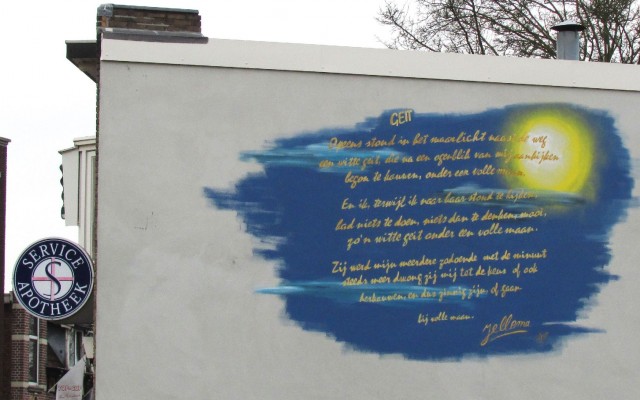 GEIT
Opeens stond in het maanlicht naast de weg
een witte geit, die na een ogenblik van mij aankijken
begon te kauwen, onder een volle maan.
En ik, terwijl ik naar haar stond te kijken,
had niets te doen, niets dan te denken: mooi,
zo'n witte geit onder een volle maan.
Zij werd mijn meerdere zodoende met de minuut
steeds meer dwong zij mij tot de keus of ook
herkauwen, en dus zinnig zijn, of gaan
bij volle maan.
Jellema
SERVICE
S
APOTHEEK